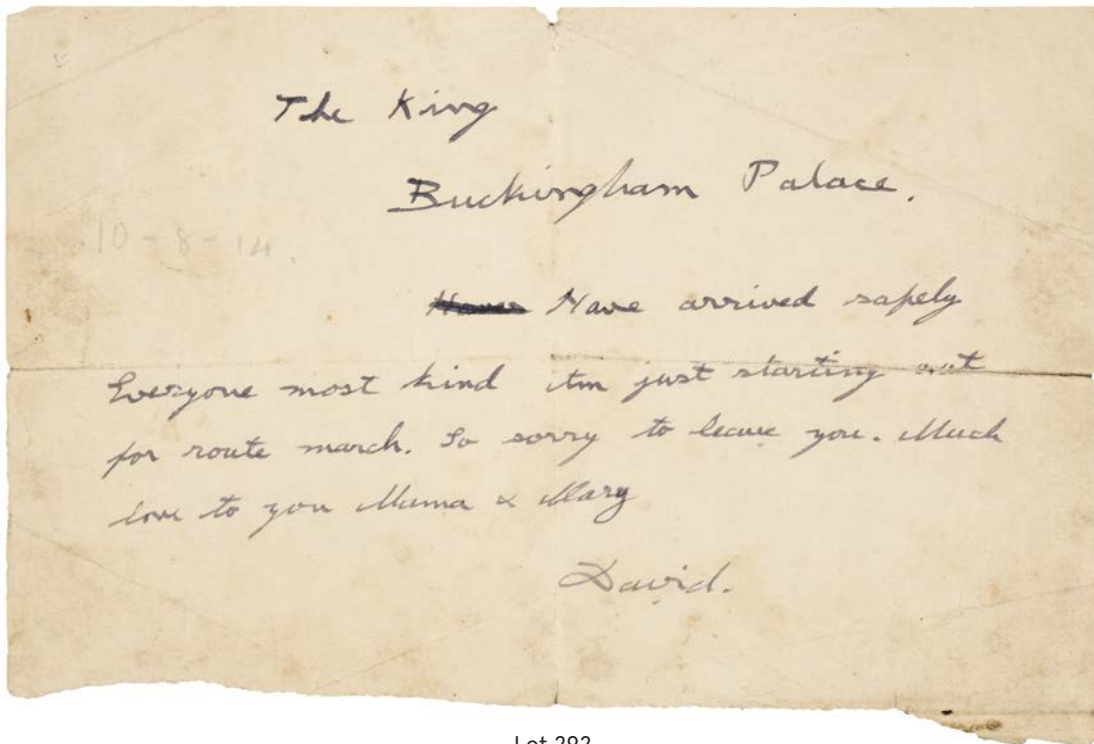 The King
Buckingham Palace.
10-8-14.
Have arrived safely
Everyone most kind Am just starting out
for route march. So sorry to leave you. Much
love to you Mama & Mary
David.
Lot 292